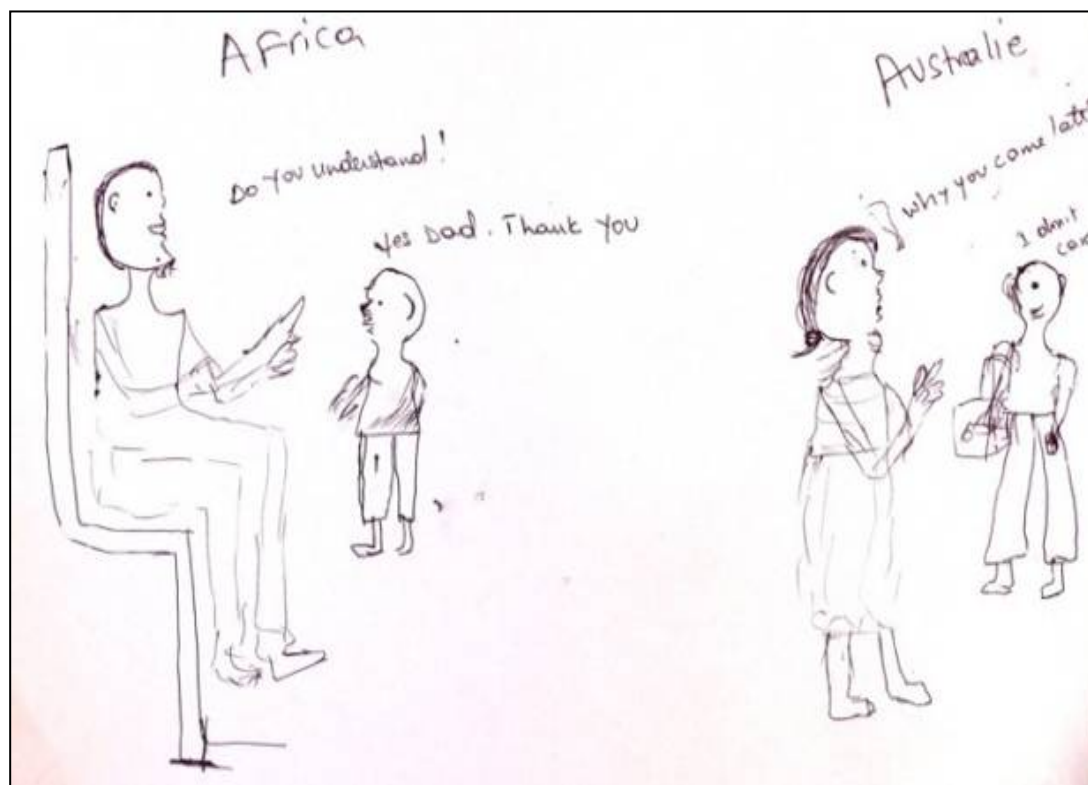 Africa
Do you understand!
Yes Dad. Thank you
Australie
why you come late
I